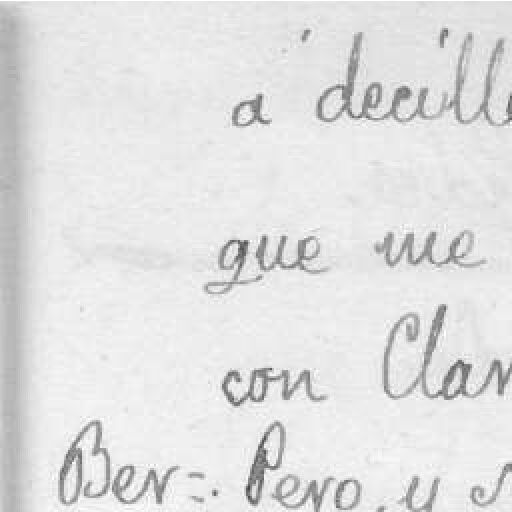 á decille
que me
con Clar
Ber=. Pero, y